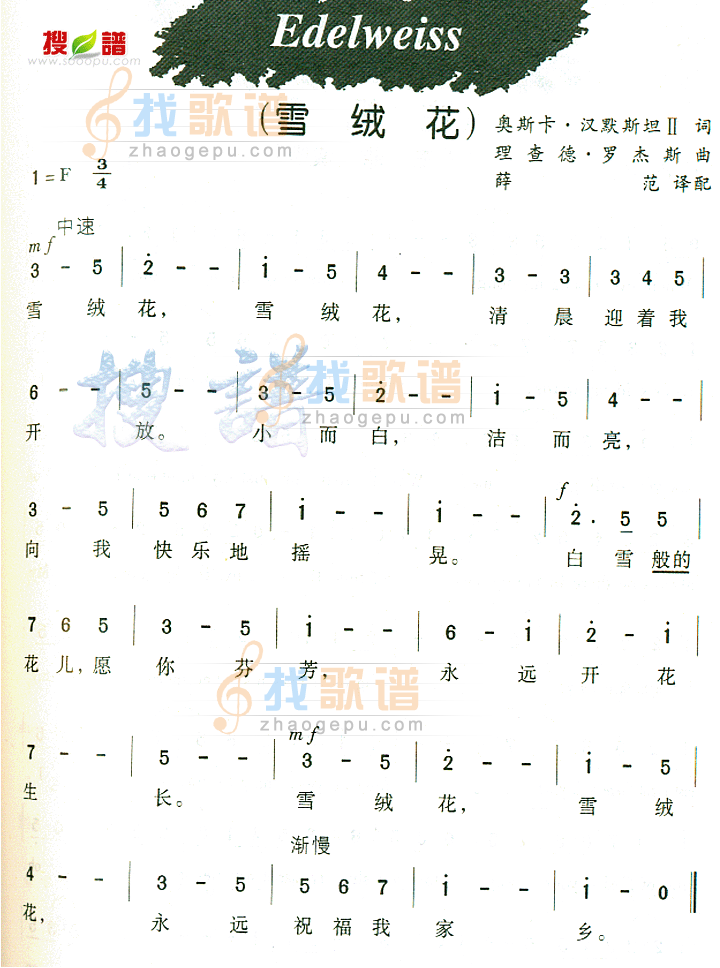 Edelweiss
搜谱
www.sooopu.com
(雪 绒 花)
找歌谱
zhaogepu.com
奥斯卡·汉默斯坦II 词
理查德·罗杰斯曲
薛 范 译配
1=F 3/4
中速
mf
3 - 5 | 2̇ - - | 1̇ - 5 | 4 - - | 3 - 3 | 3 4 5 |
雪 绒 花, 雪 绒 花, 清 晨 迎 着 我
6 - - | 5 - - | 3 - 5 | 2̇ - - | 1̇ - 5 | 4 - - |
开 放。 小 而 白, 洁 而 亮,
搜 譜
找歌谱
zhaogepu.com
f
3 - 5 | 5 6 7 | 1̇ - - | 1̇ - - | 2̇· 5 5 |
向 我 快 乐 地 摇 晃。 白 雪 般的
7 6 5 | 3 - 5 | 1̇ - - | 6 - 1̇ | 2̇ - 1̇ |
花 儿,愿 你 芬 芳, 永 远 开 花
找歌谱
zhaogepu.com
mf
7 - - | 5 - - | 3 - 5 | 2̇ - - | 1̇ - 5 |
生 长。 雪 绒 花, 雪 绒
渐慢
4 - - | 3 - 5 | 5 6 7 | 1̇ - - | 1̇ - 0 ‖
花, 永 远 祝 福 我 家 乡。